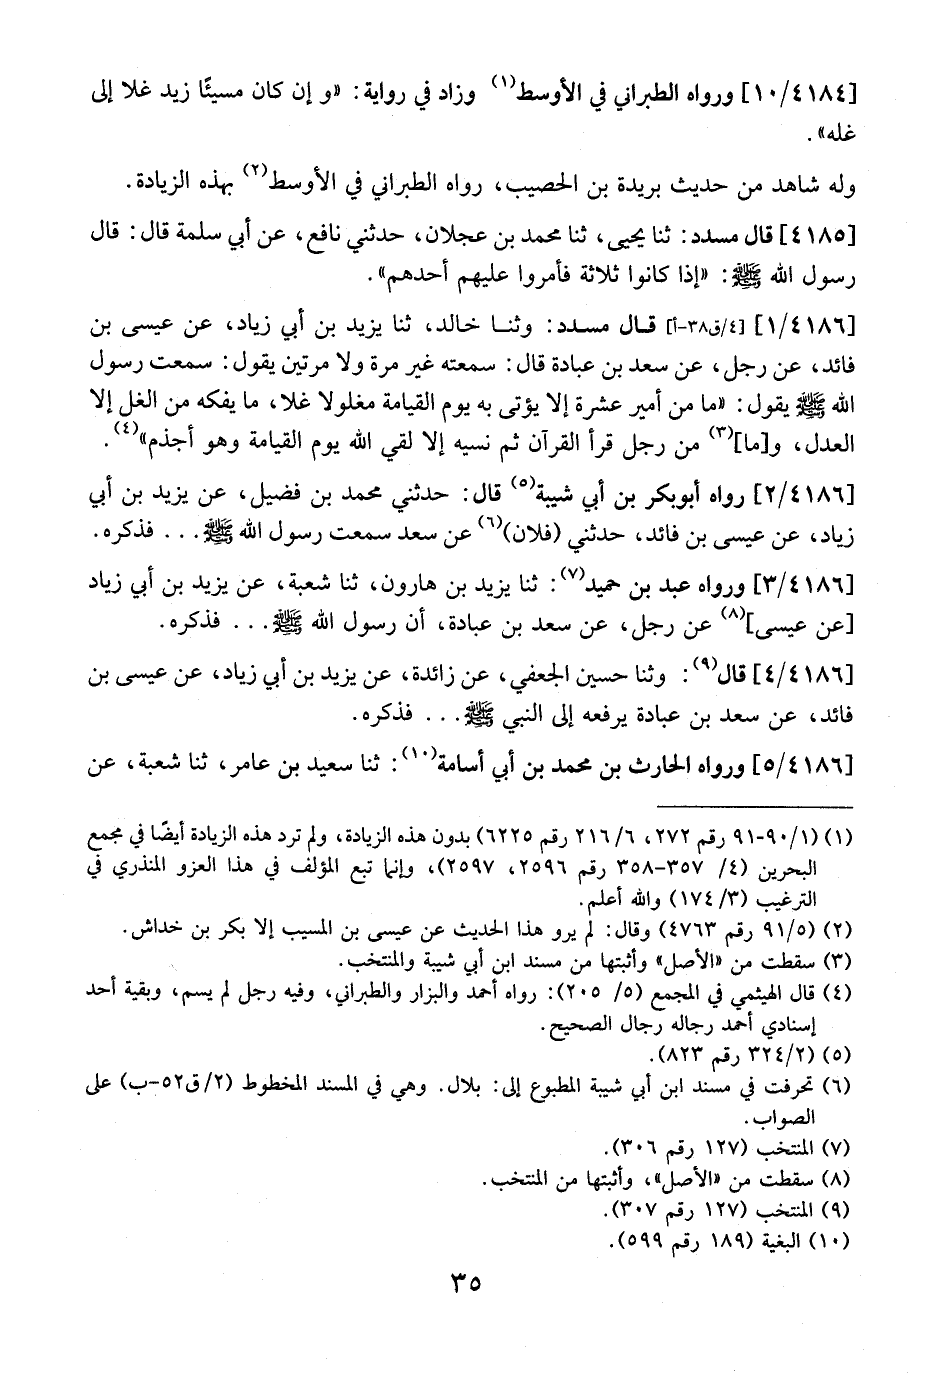 [١٠/٤١٨٤] ورواه الطبراني في الأوسط(١) وزاد في رواية: «و إن كان مسيئًا زيد غلا إلى
غله».
وله شاهد من حديث بريدة بن الحصيب، رواه الطبراني في الأوسط(٢) بهذه الزيادة.
[٤١٨٥] قال مسدد: ثنا يحيى، ثنا محمد بن عجلان، حدثني نافع، عن أبي سلمة قال: قال
رسول الله ﷺ: «إذا كانوا ثلاثة فأمروا عليهم أحدهم».
[١/٤١٨٦] [٤/ق٣٨-أ] قال مسدد: وثنا خالد، ثنا يزيد بن أبي زياد، عن عيسى بن
فائد، عن رجل، عن سعد بن عبادة قال: سمعته غير مرة ولا مرتين يقول: سمعت رسول
الله ﷺ يقول: «ما من أمير عشرة إلا يؤتى به يوم القيامة مغلولا غلا، ما يفكه من الغل إلا
العدل، و[ما](٣) من رجل قرأ القرآن ثم نسيه إلا لقي الله يوم القيامة وهو أجذم»(٤).
[٢/٤١٨٦] رواه أبوبكر بن أبي شيبة(٥) قال: حدثني محمد بن فضيل، عن يزيد بن أبي
زياد، عن عيسى بن فائد، حدثني (فلان)(٦) عن سعد سمعت رسول الله ﷺ... فذكره.
[٣/٤١٨٦] ورواه عبد بن حميد(٧): ثنا يزيد بن هارون، ثنا شعبة، عن يزيد بن أبي زياد
[عن عيسى](٨) عن رجل، عن سعد بن عبادة، أن رسول الله ﷺ... فذكره.
[٤/٤١٨٦] قال(٩): وثنا حسين الجعفي، عن زائدة، عن يزيد بن أبي زياد، عن عيسى بن
فائد، عن سعد بن عبادة يرفعه إلى النبي ﷺ... فذكره.
[٥/٤١٨٦] ورواه الحارث بن محمد بن أبي أسامة(١٠): ثنا سعيد بن عامر، ثنا شعبة، عن
(١) (١/ ٩٠-٩١ رقم ٢٧٢، ٦/ ٢١٦ رقم ٦٢٢٥) بدون هذه الزيادة، ولم ترد هذه الزيادة أيضًا في مجمع
البحرين (٤/ ٣٥٧-٣٥٨ رقم ٢٥٩٦، ٢٥٩٧)، وإنما تبع المؤلف في هذا العزو المنذري في
الترغيب (٣/ ١٧٤) والله أعلم.
(٢) (٥/ ٩١ رقم ٤٧٦٣) وقال: لم يرو هذا الحديث عن عيسى بن المسيب إلا بكر بن خداش.
(٣) سقطت من «الأصل» وأثبتها من مسند ابن أبي شيبة والمنتخب.
(٤) قال الهيثمي في المجمع (٥/ ٢٠٥): رواه أحمد والبزار والطبراني، وفيه رجل لم يسم، وبقية أحد
إسنادي أحمد رجاله رجال الصحيح.
(٥) (٢/ ٣٢٤ رقم ٨٢٣).
(٦) تحرفت في مسند ابن أبي شيبة المطبوع إلى: بلال. وهي في المسند المخطوط (٢/ق٥٢-ب) على
الصواب.
(٧) المنتخب (١٢٧ رقم ٣٠٦).
(٨) سقطت من «الأصل»، وأثبتها من المنتخب.
(٩) المنتخب (١٢٧ رقم ٣٠٧).
(١٠) البغية (١٨٩ رقم ٥٩٩).
٣٥